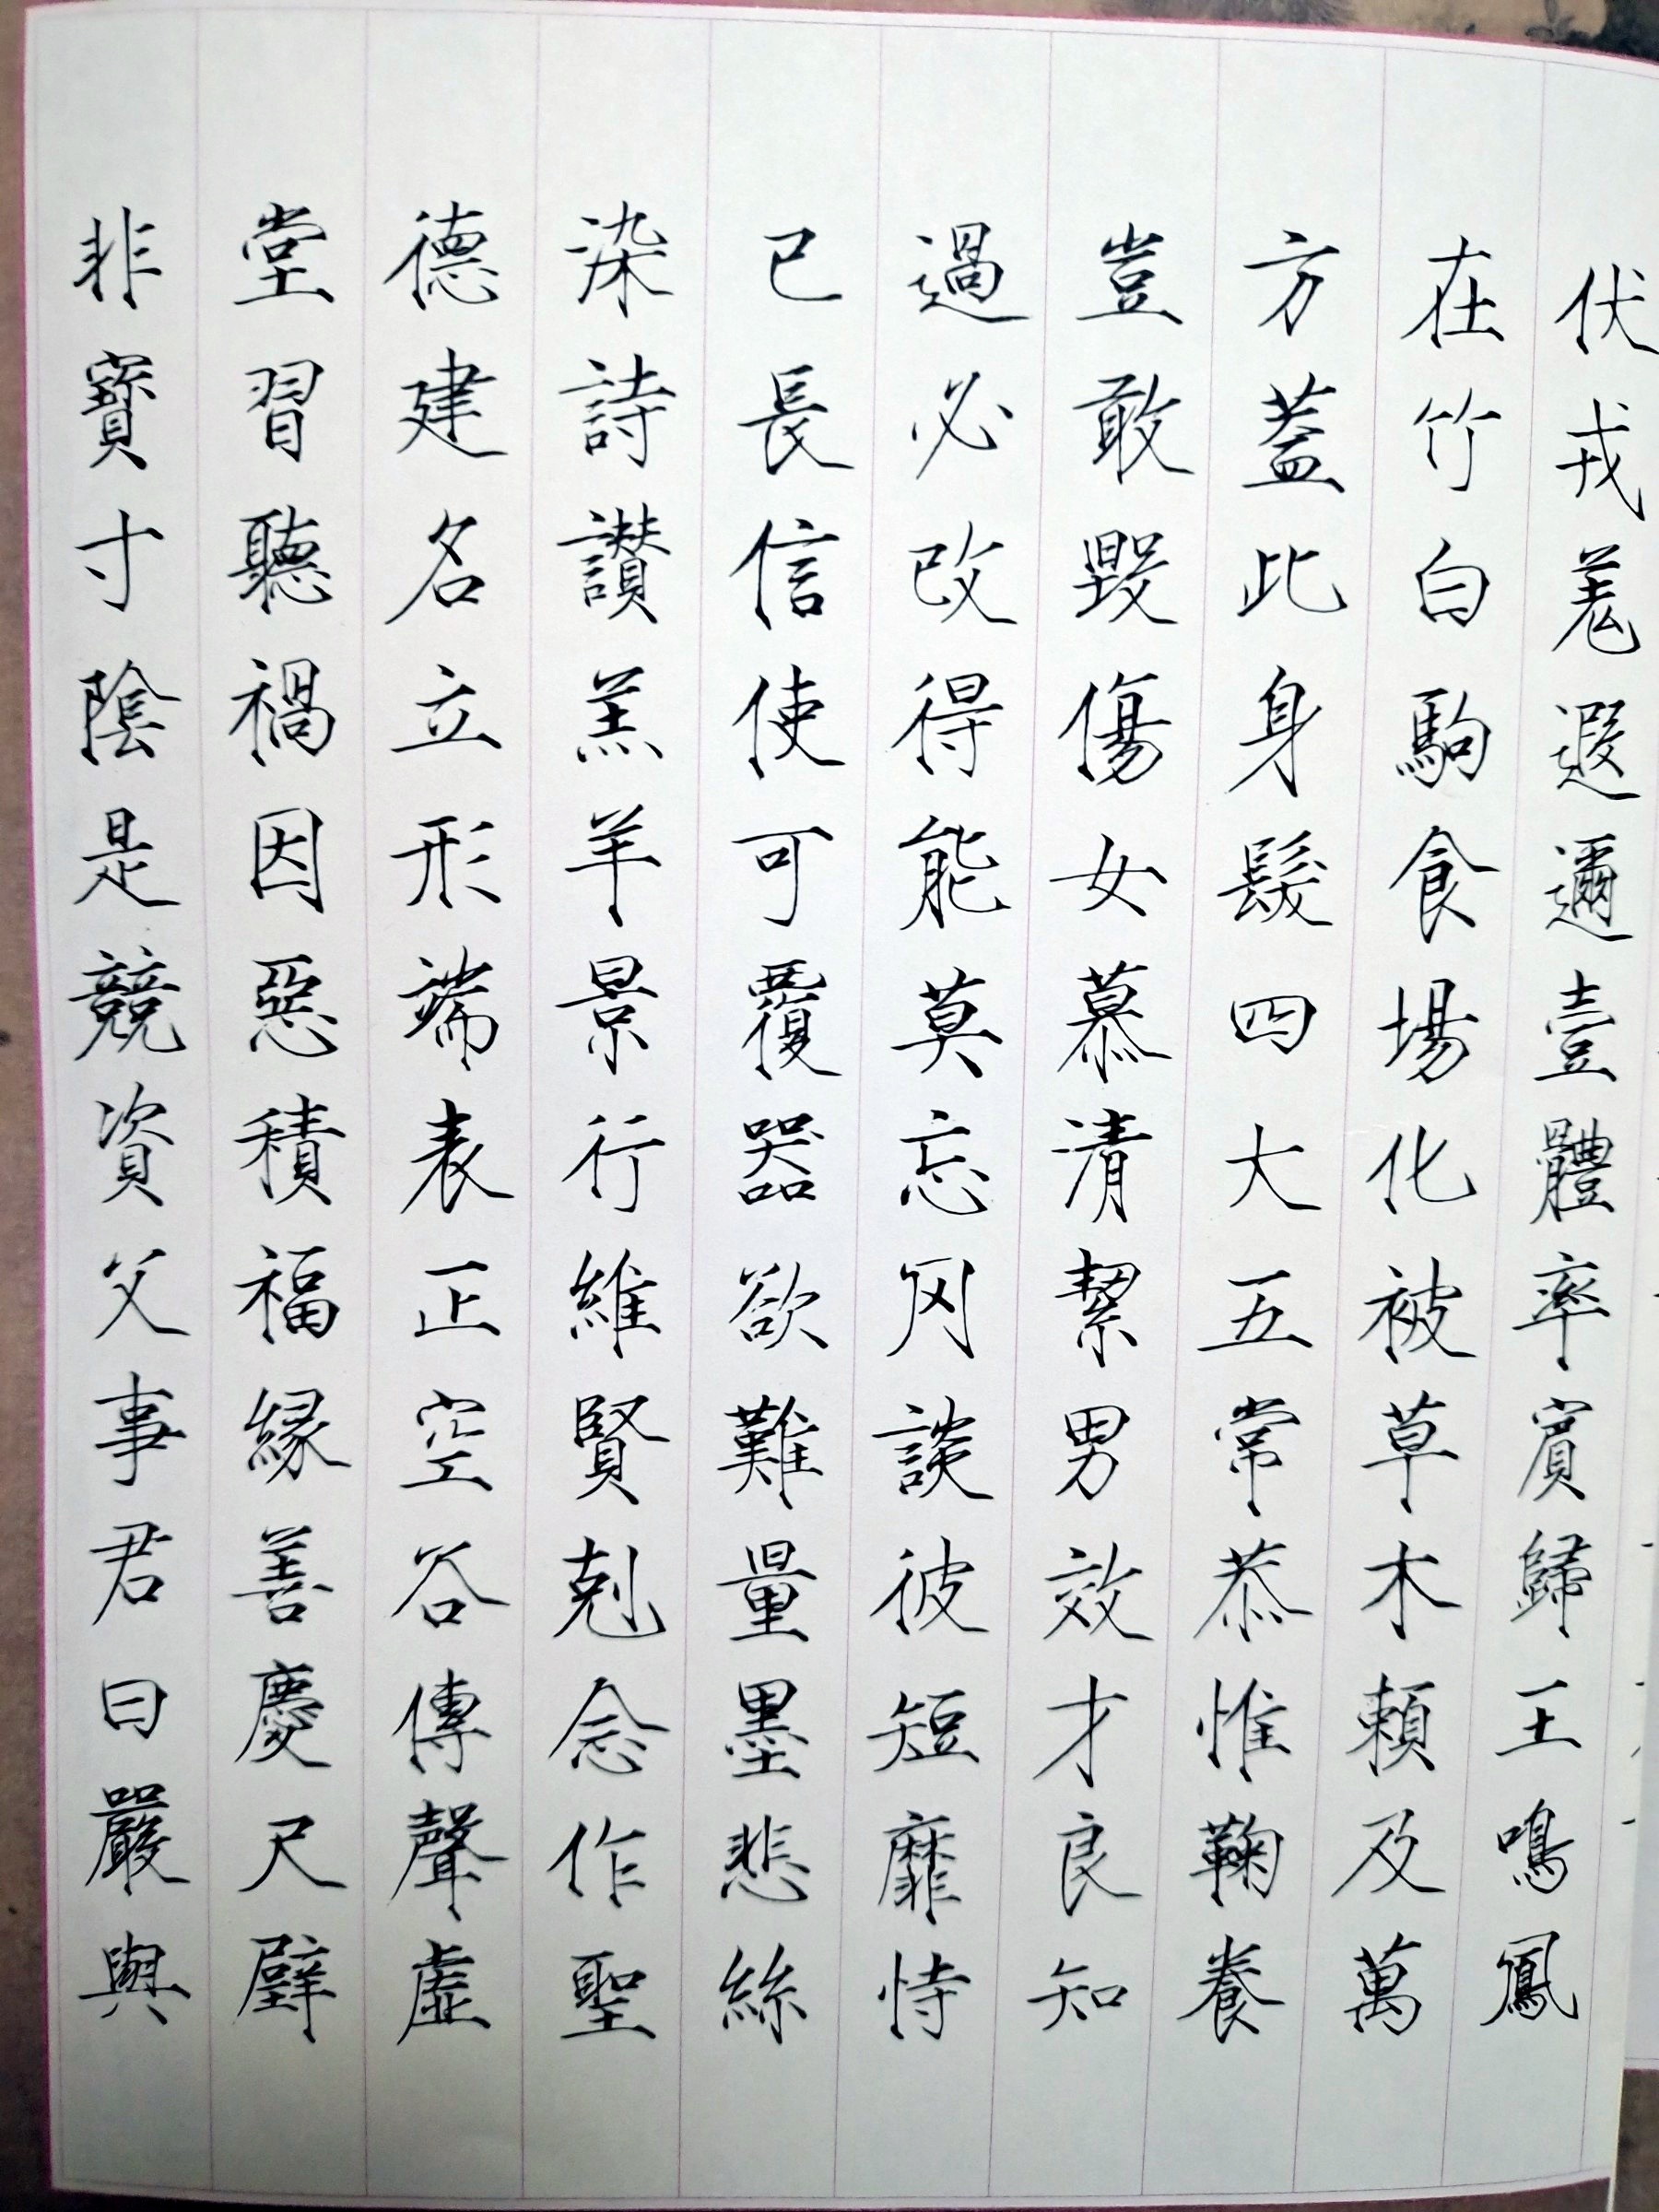 伏戎羌遐邇壹體率賓歸王鳴鳳
在竹白駒食場化被草木賴及萬
方蓋此身髮四大五常恭惟鞠養
豈敢毀傷女慕清絜男效才良知
過必改得能莫忘罔談彼短靡恃
已長信使可覆器欲難量墨悲絲
染詩讃羔羊景行維賢剋念作聖
德建名立形端表正空谷傳聲虛
堂習聽禍因惡積福緣善慶尺璧
非寶寸陰是競資父事君曰嚴與